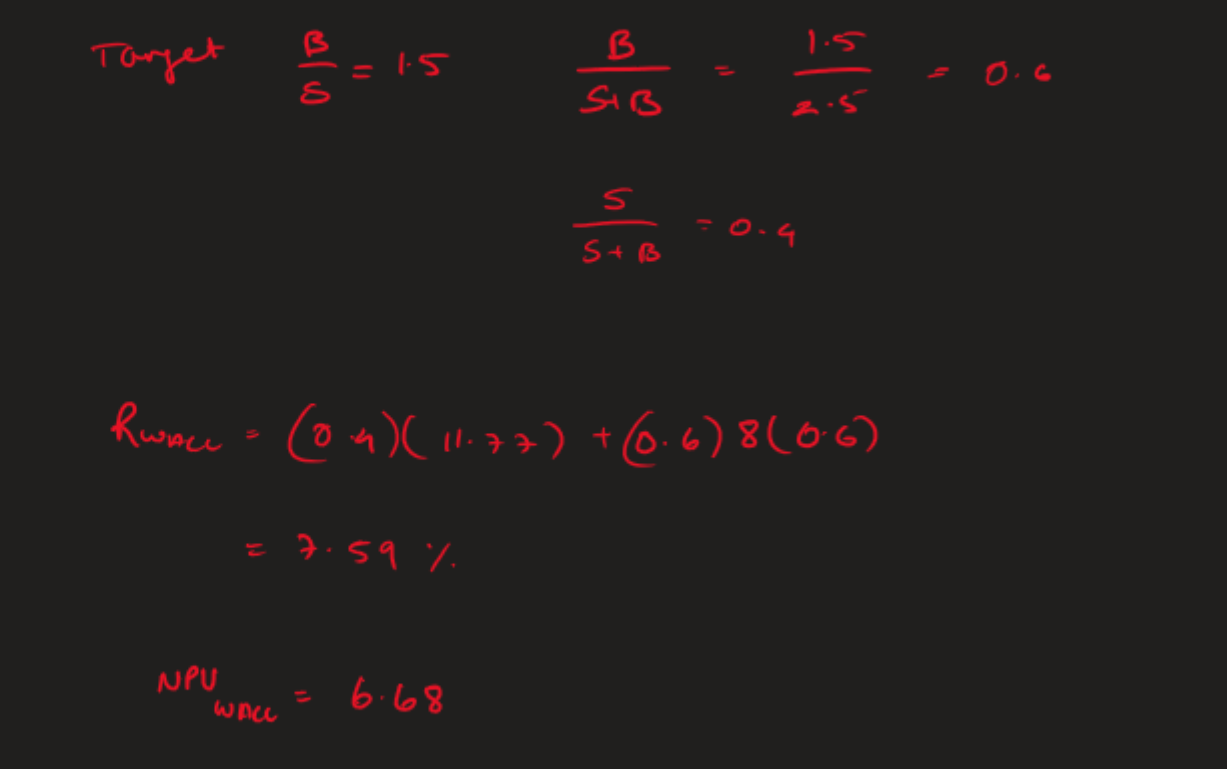 Target B/S = 1.5 B/(S+B) = 1.5/2.5 = 0.6
S/(S+B) = 0.4
RWACC = (0.4)(11.77) + (0.6) 8(0.6)
= 7.59 %
NPVWACC = 6.68